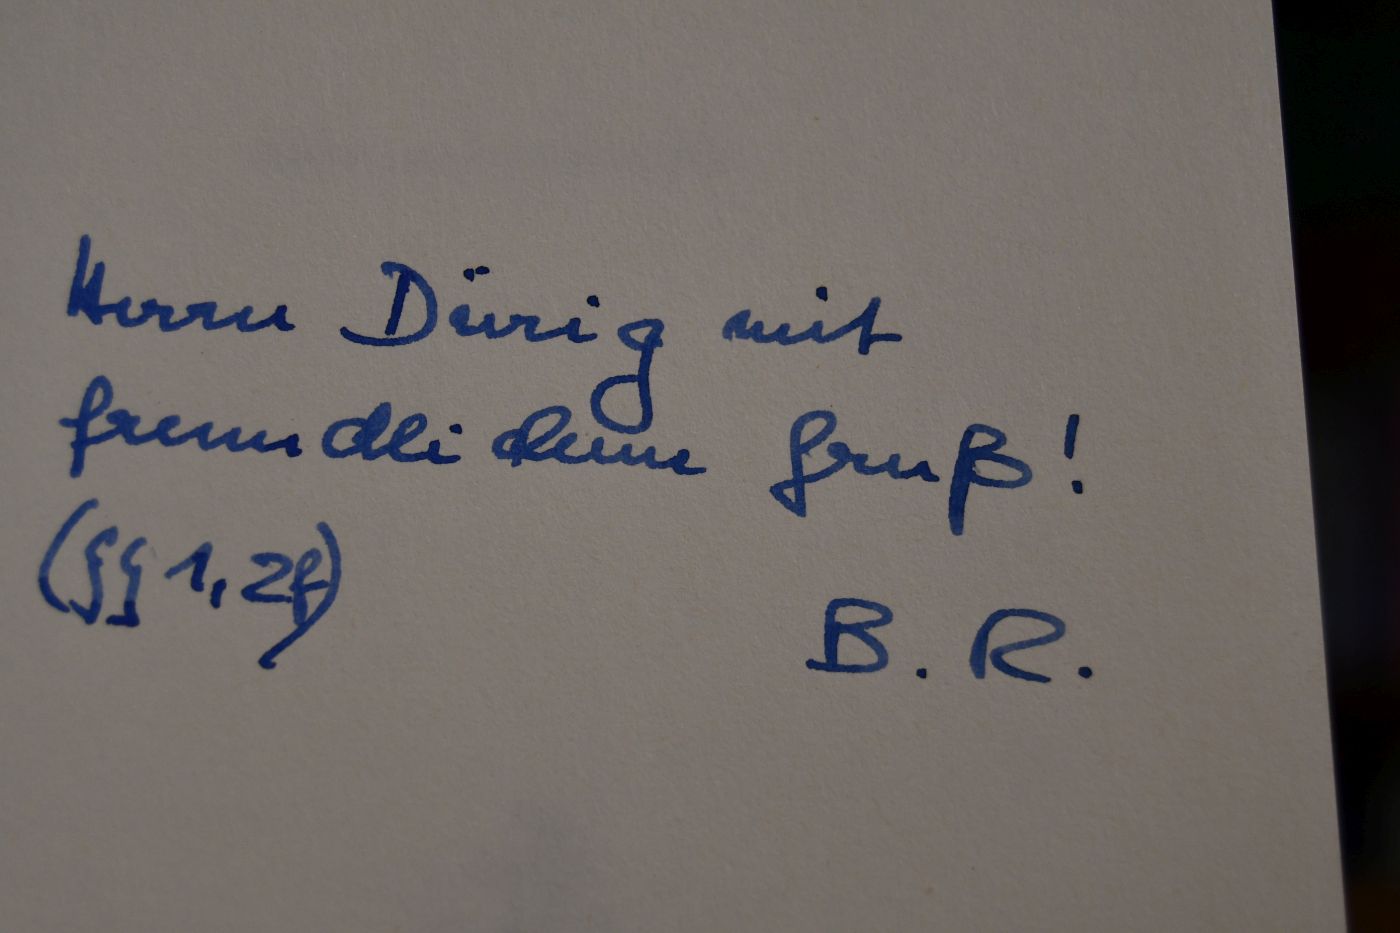 Herrn Dürig mit
freundlichem Gruß!
(§§ 1, 2f)
B. R.